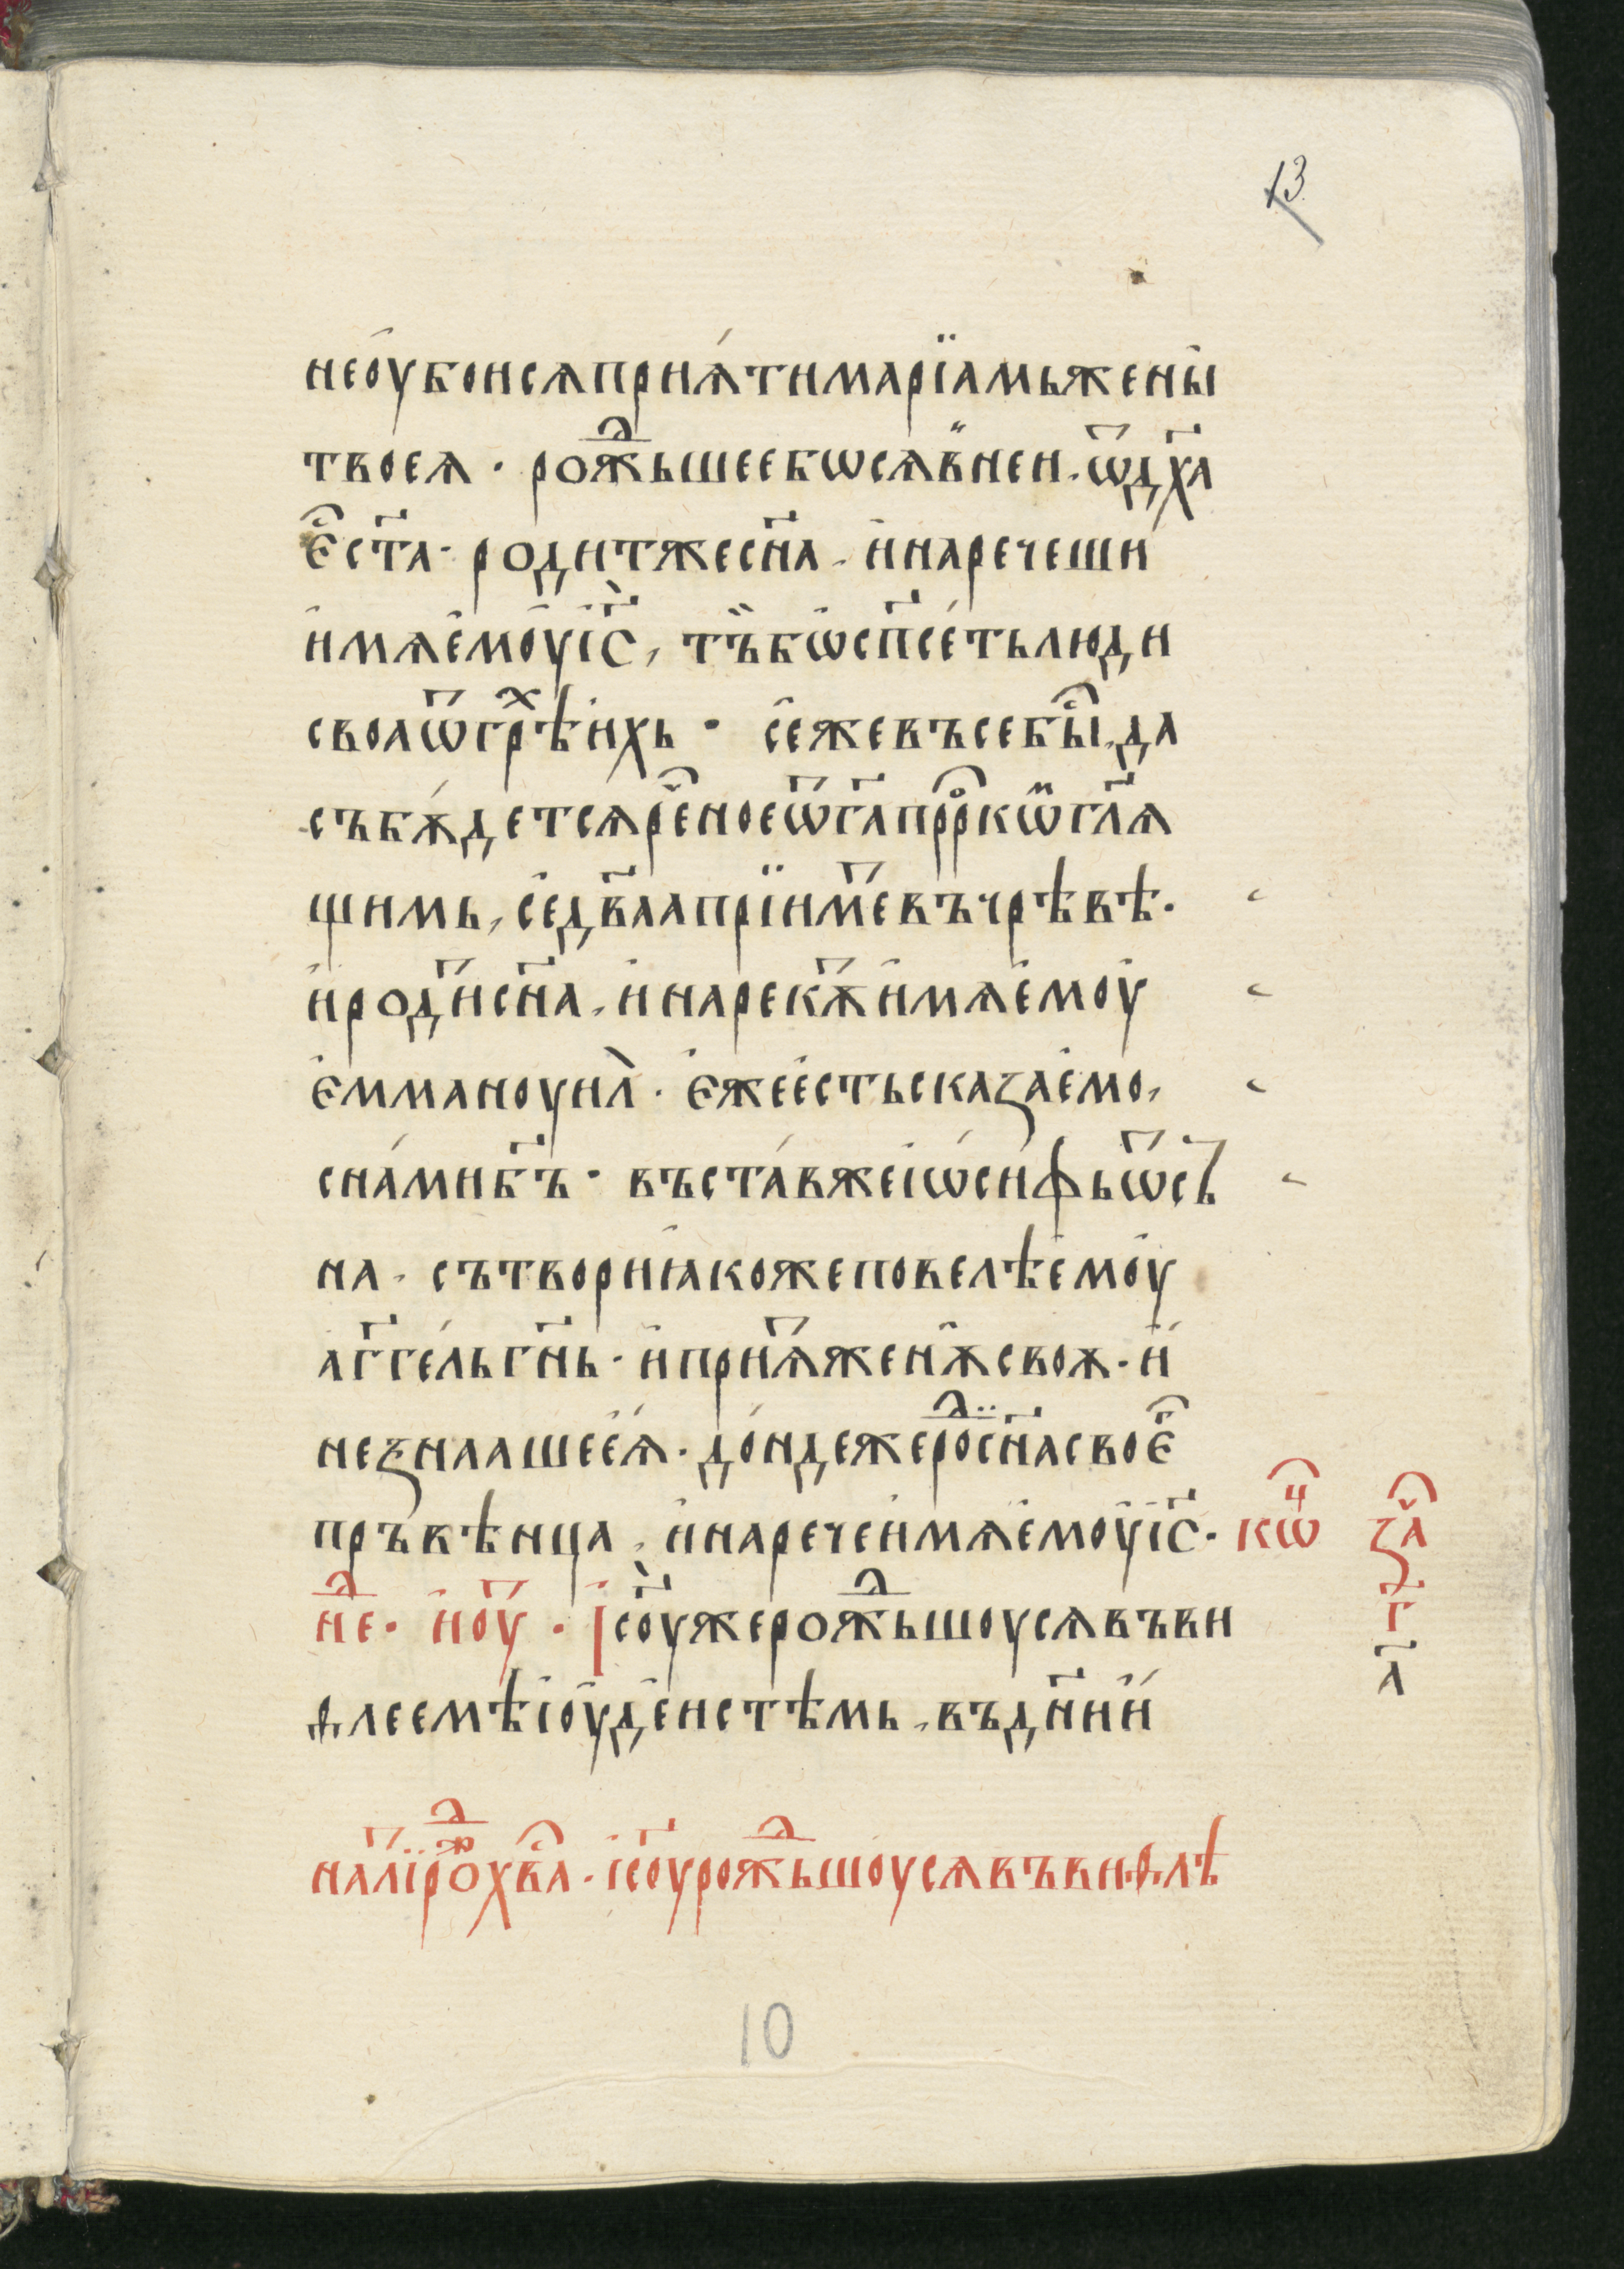 13
не оубоися прїѧти марїамь жены
твоеѧ · рождьшее бѡ сѧ в неи · ѿ дх҃а
ест ст҃а · родит же сн҃а · и наречеши
имѧ емоу і҃с, тъ бѡ сп҃сеть люди
своа ѿ грѣхь ихь · се же въсе бы, да
събѫдетсѧ реное ѿ г҃а пррⷪкѡм гл҃ѧ
щимь, се дв҃аа прїимⷮе въ чрѣвѣ ·
и родⷮи сн҃а, и нарекѫⷮ имѧ емоу
еммануил · еже есть сказаемо,
с нами б҃ъ · въстав же іѡсифь ѿ съ
на · сътвори ꙗкоже повелѣ емоу
аг҃гель гн҃ь · и приѧⷮ женѫ своѫ · и
не ꙁнааше еѧ · дондеже роⷣ сн҃а своеⷢ
пръвѣнца, и нарече имѧ емоу і҃с · кѡⷰ
неⷣ · и оуⷮ · І҃соу же рождьшоу сѧ въ ви
ѳлеемѣ іоудеистѣмь, въ дн҃и и
заⷱ
г҃
а҃
на лїⷮ рⷪжⷣ хв҃а · і҃соу рождьшоу сѧ въ виѳлѣ
10